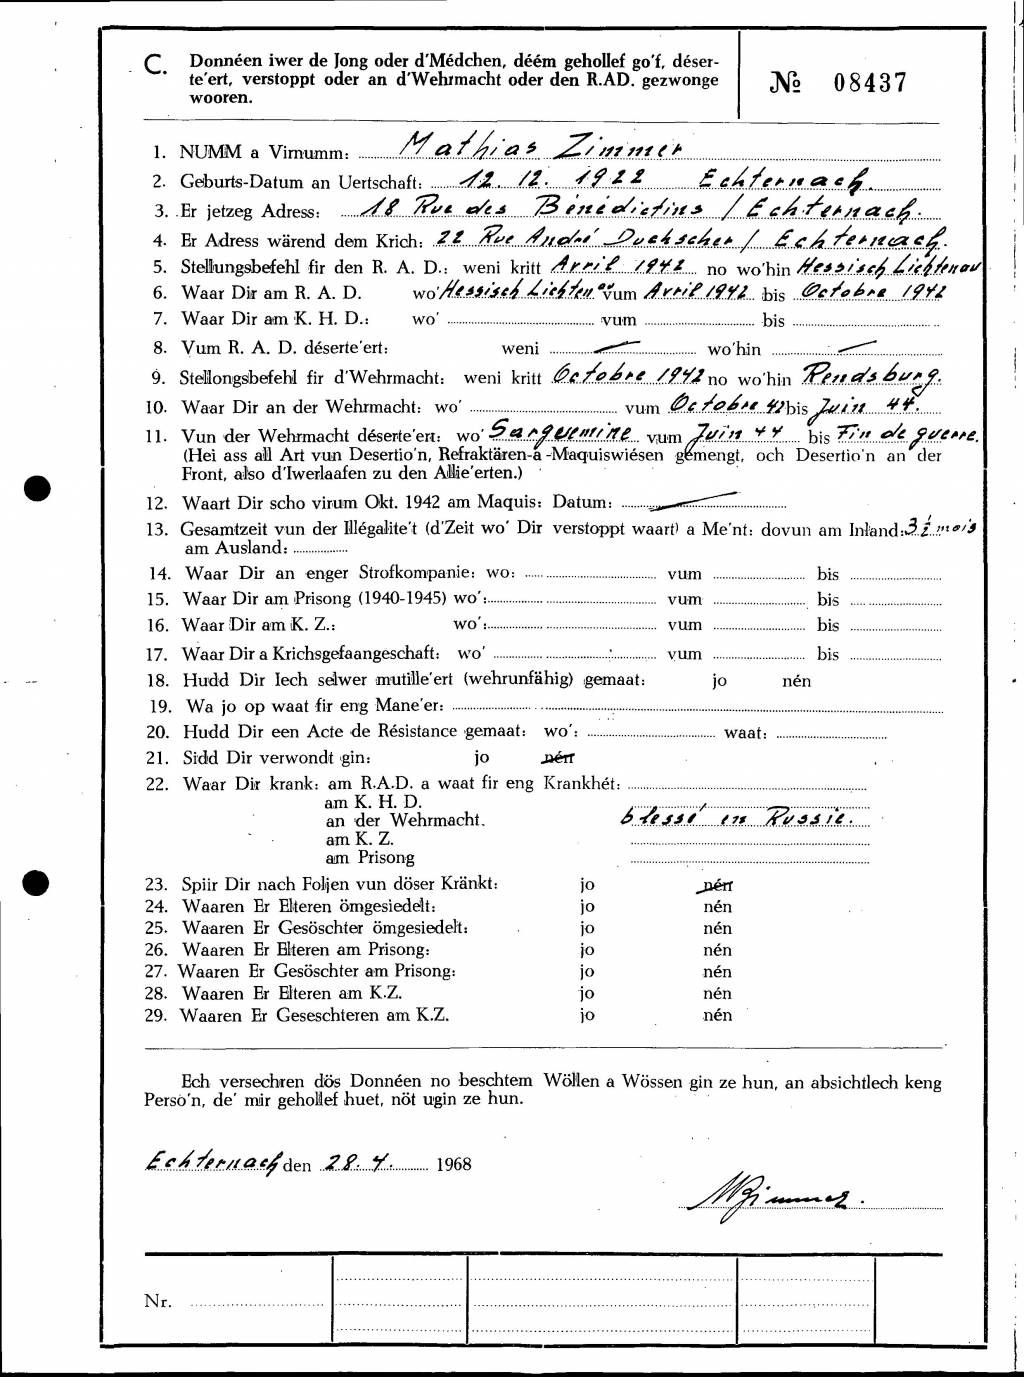 C. Donnéen iwer de Jong oder d'Médchen, déém gehollef go'f, déser-
te'ert, verstoppt oder an d'Wehrmacht oder den R.AD. gezwonge
wooren.
№ 08437
1. NUMM a Virnumm: Mathias Zimmer
2. Geburts-Datum an Uertschaft: 12. 12. 1922 Echternach.
3. Er jetzeg Adress: 18 Rue des Bénédictins / Echternach.
4. Er Adress wärend dem Krich: 22 Rue André Duchscher / Echternach.
5. Stellungsbefehl fir den R. A. D.: weni kritt Avril 1942 no wo'hin Hessisch Lichtenau
6. Waar Dir am R. A. D. wo' Hessisch Lichtenau vum Avril 1942 bis Octobre 1942
7. Waar Dir am K. H. D.: wo' vum bis
8. Vum R. A. D. déserte'ert: weni — wo'hin —
9. Stellongsbefehl fir d'Wehrmacht: weni kritt Octobre 1942 no wo'hin Rendsburg.
10. Waar Dir an der Wehrmacht: wo' vum Octobre 42 bis Juin 44.
11. Vun der Wehrmacht déserte'ert: wo' Sarguemine vum Juin 44 bis Fin de guerre.
(Hei ass all Art vun Desertio'n, Refraktären-a -Maquiswiésen gemengt, och Desertio'n an der
Front, also d'Iwerlaafen zu den Allie'erten.)
12. Waart Dir scho virum Okt. 1942 am Maquis: Datum: —
13. Gesamtzeit vun der Illégalite't (d'Zeit wo' Dir verstoppt waart) a Me'nt: dovun am Inland: 3 1/2 mois
am Ausland:
14. Waar Dir an enger Strofkompanie: wo: vum bis
15. Waar Dir am Prisong (1940-1945) wo': vum bis
16. Waar Dir am K. Z.: wo': vum bis
17. Waar Dir a Krichsgefaangeschaft: wo' vum bis
18. Hudd Dir Iech selwer mutille'ert (wehrunfähig) gemaat: jo nén
19. Wa jo op waat fir eng Mane'er:
20. Hudd Dir een Acte de Résistance gemaat: wo': waat:
21. Sidd Dir verwondt gin: jo nén
22. Waar Dir krank: am R.A.D. a waat fir eng Krankhét:
am K. H. D.
an der Wehrmacht. blessé en Russie.
am K. Z.
am Prisong
23. Spiir Dir nach Foljen vun döser Kränkt: jo nén
24. Waaren Er Elteren ömgesiedelt: jo nén
25. Waaren Er Gesöschter ömgesiedelt: jo nén
26. Waaren Er Elteren am Prisong: jo nén
27. Waaren Er Gesöschter am Prisong: jo nén
28. Waaren Er Elteren am K.Z. jo nén
29. Waaren Er Geseschteren am K.Z. jo nén
Ech versechren dös Donnéen no beschtem Wöllen a Wössen gin ze hun, an absichtlech keng
Perso'n, de' mir gehollef huet, nöt ugin ze hun.
Echternach den 28. 4. 1968
MZimmer.
Nr.